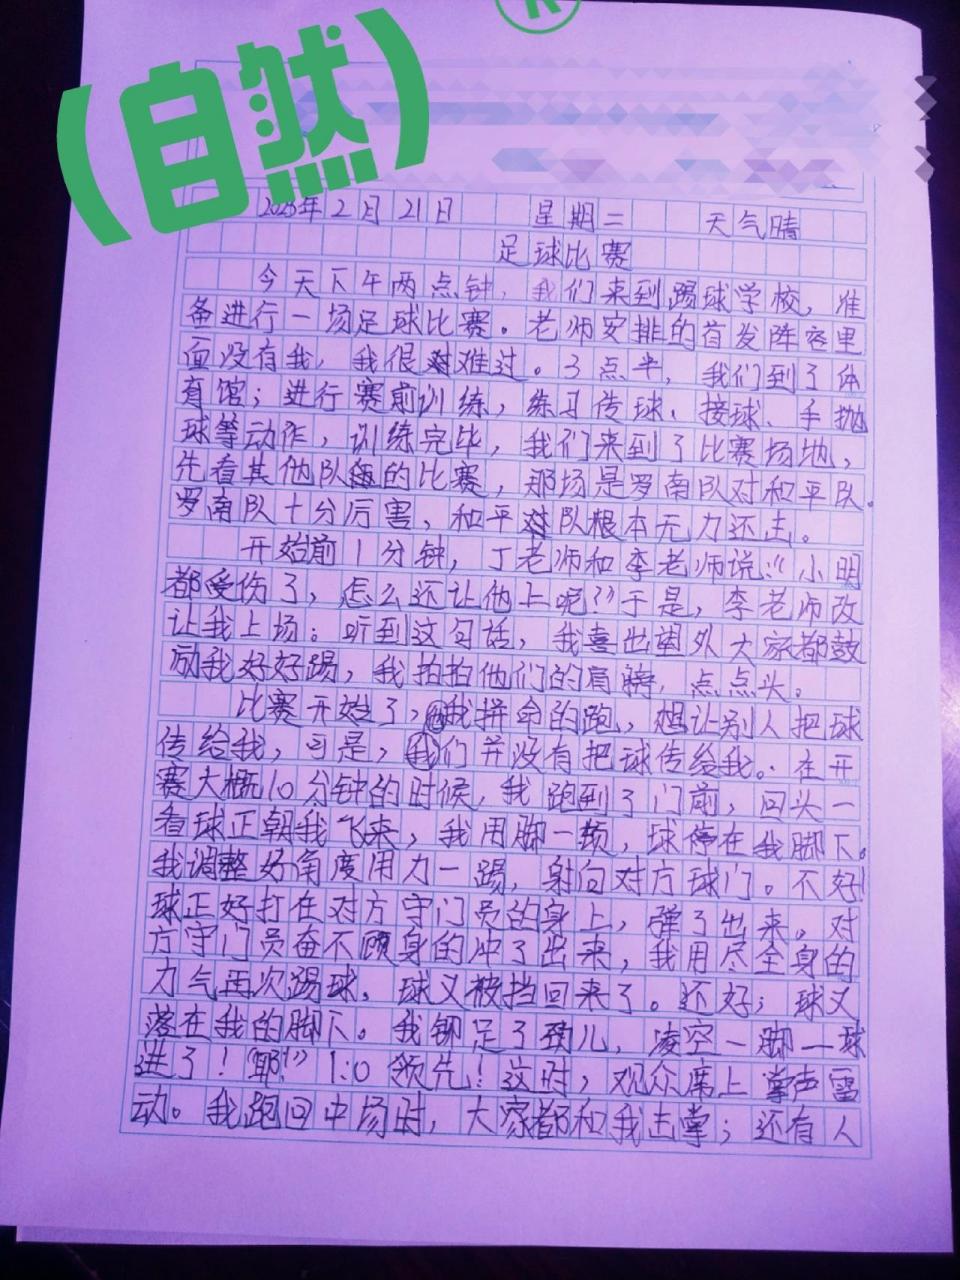 (自然)
R
2023年2月21日 星期二 天气晴
足球比赛
今天下午两点钟,我们来到踢球学校,准
备进行一场足球比赛。老师安排的首发阵容里
面没有我,我很难过。3点半,我们到了体
育馆;进行赛前训练,练习传球、接球、手抛
球等动作,训练完毕,我们来到了比赛场地,
先看其他队的比赛,那场是罗南队对和平队.
罗南队十分厉害,和平队根本无力还击。
开始前1分钟,丁老师和李老师说:“小明
都受伤了,怎么还让他上呢?”于是,李老师改
让我上场。听到这句话,我喜出望外大家都鼓
励我好好踢,我拍拍他们的肩膀,点点头。
比赛开始了,我拼命的跑,想让别人把球
传给我,可是,我们并没有把球传给我。在开
赛大概10分钟的时候,我跑到了门前,回头一
看球正朝我飞来,我用脚一顿,球停在我脚下。
我调整好角度用力一踢,射向对方球门。不好!
球正好打在对方守门员的身上,弹了出来。对
方守门员奋不顾身的冲了出来,我用尽全身的
力气再次踢球,球又被挡回来了。还好;球又
落在我的脚下。我铆足了劲儿,凌空一脚—球
进了!“耶!”1:0领先!这时,观众席上掌声雷
动。我跑回中场时,大家都和我击掌;还有人